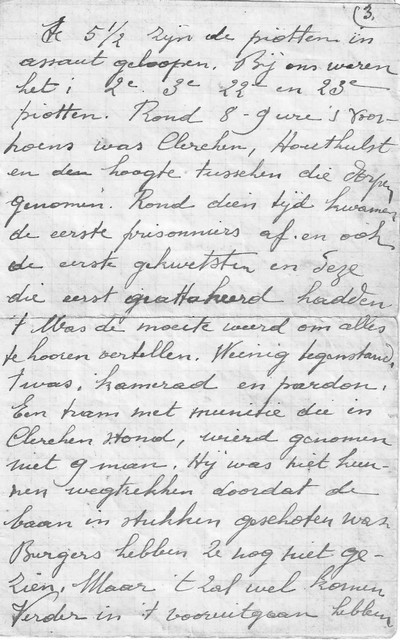 (3.
Te 5 1/2 zijn de piotten in
assaut geloopen. Bij ons waren
het: 2e 3e 22e en 23e
piotten. Rond 8-9 ure 's voor-
noens was Clercken, Houthulst
en den hoogte tusschen die dorpen
genomen. Rond dien tijd kwamen
de eerste prisonniers af en ook
de eerste gekwetsten en deze
die eerst geattakeerd hadden
't Was de moeite weerd om alles
te hooren vertellen. Weinig tegenstand,
't was, kamerad en pardon.
Een tram met munitie die in
Clercken stond, wierd genomen
met 9 man. Hij was niet kun-
nen wegtrekken doordat de
baan in stukken geschoten was
Burgers hebben ze nog niet ge-
zien. Maar 't zal wel komen
Verder in 't vooruitgaan hebben